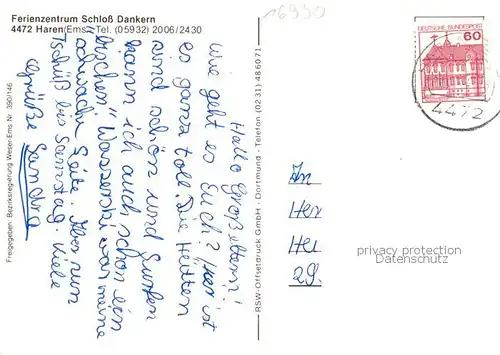 16930
Ferienzentrum Schloß Dankern
4472 Haren (Ems) · Tel. (05932) 2006/2430
DEUTSCHE BUNDESPOST
60
4472
Hallo Großeltern!
Wie geht es Euch? Hier ist
es ganz toll. Die Hütten
sind schön und Surfen
kann ich auch schon ein
bißchen". Wasserski war meine
schwache Seite. Aber nun
Tschüß bis Samstag. Viele
Grüße Sandra
Freigegeben: Bezirksregierung Weser-Ems Nr. 3900146
RSW-Offsetdruck GmbH · Dortmund · Telefon (0231) 486071
An
Her
He
29.
privacy protection
Datenschutz